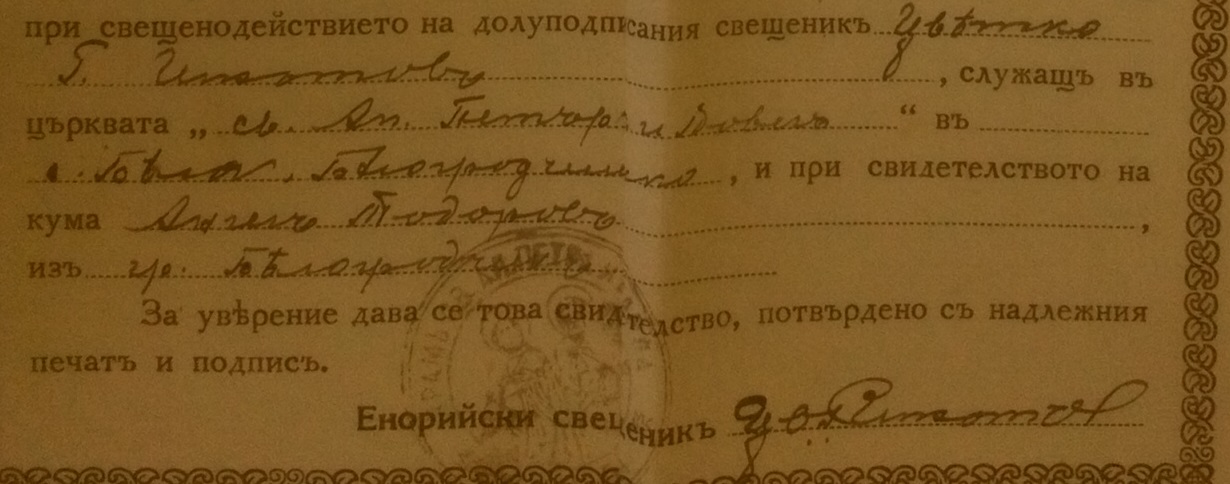 при свещенодействието на долуподписания свещеникъ Цвѣтко
Г. Игнатовъ, служащъ въ
църквата „ св. Ап. Петъръ и Павелъ “ въ
с. Бѣла, Бѣлоградчишко, и при свидетелството на
кума Ангелъ Тодоровъ,
изъ гр. Бѣлоградчикъ
За увѣрение дава се това свидетелство, потвърдено съ надлежния
печатъ и подписъ.
Енорийски свещеникъ